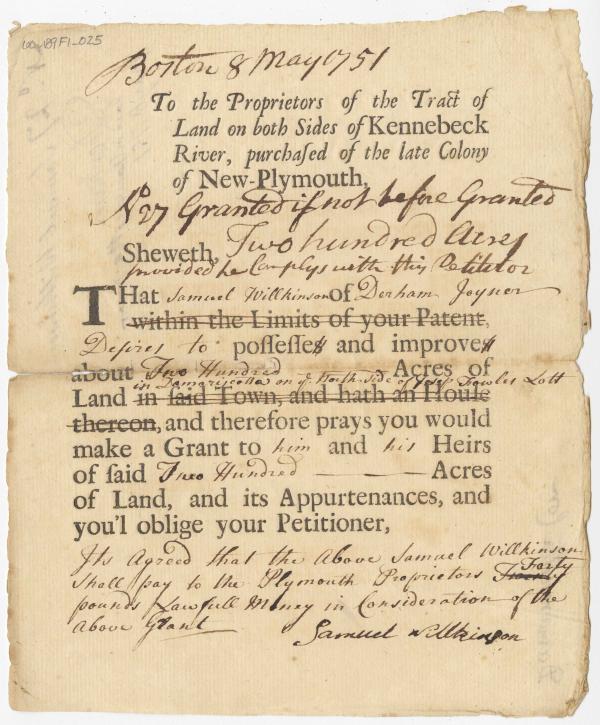 60-189F1-025
Boston 8 May 1751
To the Proprietors of the Tract of
Land on both Sides of Kennebeck
River, purchaſed of the late Colony
of New-Plymouth,
No 27 Granted if not before Granted
Two hundred Acres
Sheweth,
provided he Complys with this Petition
THat Samuel Willkinson of Derham Joyner
within the Limits of your Patent,
Desires to poſſeſſes and improves
about Two Hundred Acres of
in Damariscotta on ye North side of Fowles Lott
Land in ſaid Town, and hath an Houſe
thereon, and therefore prays you would
make a Grant to him and his Heirs
of ſaid Two Hundred Acres
of Land, and its Appurtenances, and
you'l oblige your Petitioner,
Its Agreed that the Above Samuel Willkinson
Forty
Shall pay to the Plymouth Proprietors Twenty
pounds Lawfull Money in Consideration of the
Above Grant
Samuel Willkinson